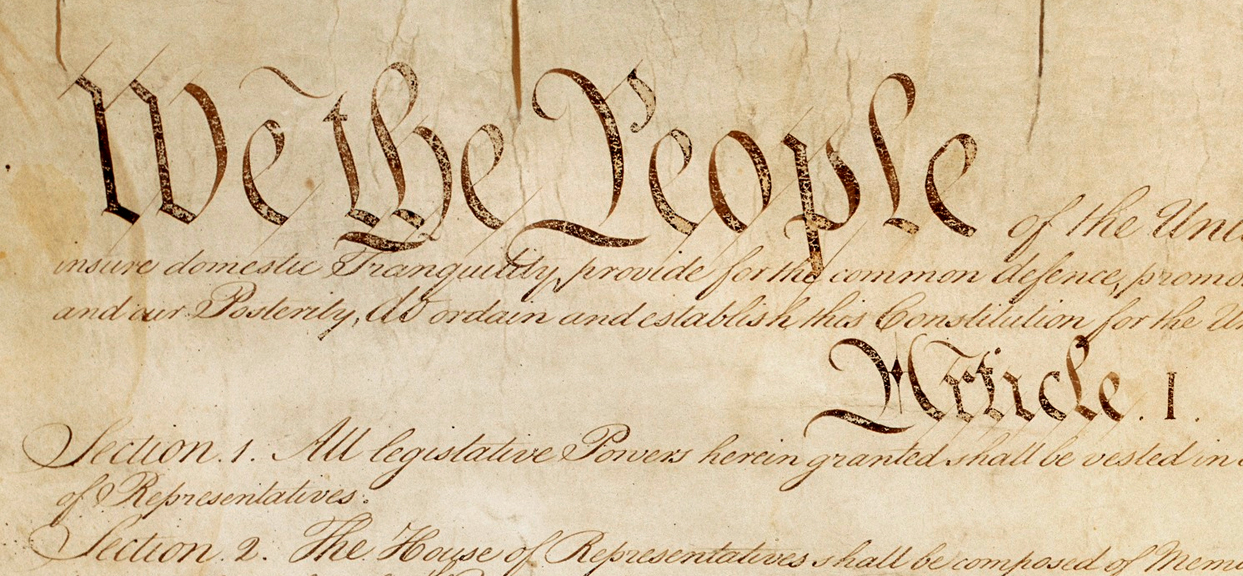 We the People of the Uni
insure domestic Tranquility, provide for the common defence, promo
and our Posterity, do ordain and establish this Constitution for the Un
Article. I.
Section. 1. All legislative Powers herein granted shall be vested in a
of Representatives.
Section. 2. The House of Representatives shall be composed of Mem